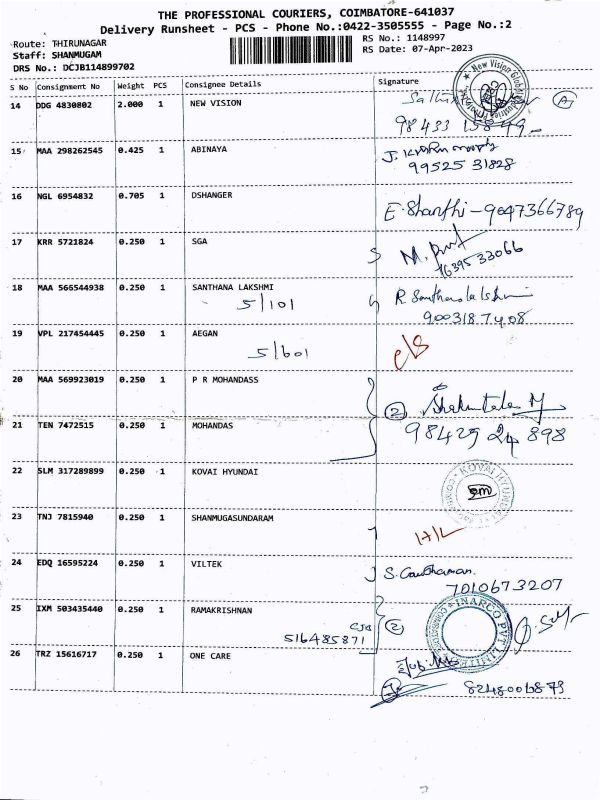 THE PROFESSIONAL COURIERS, COIMBATORE-641037
Delivery Runsheet - PCS - Phone No.:0422-3505555 - Page No.:2
Route: THIRUNAGAR
RS No.: 1148997
Staff: SHANMUGAM
RS Date: 07-Apr-2023
DRS No.: DCJB114899702
S No Consignment No Weight PCS Consignee Details Signature
14 DDG 4830802 2.000 1 NEW VISION
New Vision Global
98433
15 MAA 298262545 0.425 1 ABINAYA
99525 31828
16 NGL 6954832 0.705 1 DSHANGER E. Shanthi - 9047366789
17 KRR 5721824 0.250 1 SGA
18 MAA 566544938 0.250 1 SANTHANA LAKSHMI
5/101
9003187408
19 VPL 217454445 0.250 1 AEGAN
5/601
20 MAA 569923019 0.250 1 P R MOHANDASS
2
21 TEN 7472515 1 0.250 MOHANDAS
98429 24 898
22 SLM 317289899 0.250 1 KOVAI HYUNDAI
KOVAI HYUNDAI
23 TNJ 7815940 0.250 1 SHANMUGASUNDARAM
24 EDQ 16595224 0.250 1 VILTEK
7010673207
25 IXM 503435440 0.250 1 RAMAKRISHNAN
CJB
516485871
2
INARCO PVT LIMITED
26 TRZ 15616717 0.250 1 ONE CARE